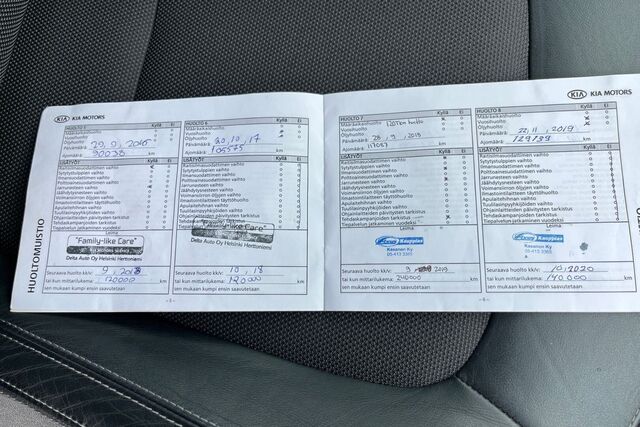 KIA MOTORS
HUOLTOMUISTIO
HUOLTO 5 Kyllä Ei
Määräaikaishuolto
Vuosihuolto
Öljyhuolto
Päivämäärä:
Ajomäärä: 90038 km
LISÄTYÖT Kyllä Ei
Raitisilmasuodattimen vaihto
Sytytystulppien vaihto
Ilmansuodattimen vaihto
Polttoainesuodattimen vaihto
Jarrunesteen vaihto
Jäähdytysnesteen vaihto
Voimansiirron öljyjen vaihto
Ilmastointilaitteen täyttöhuolto
Apulaitehihnan vaihto
Tuulilasinpyyhkijöiden vaihto
Ohjainlaitteiden päivitysten tarkistus
Tehdaskampanjoiden tarkistus
Tiepalvelun jatkaminen vuodeksi
Leima
"Family-like Care"
Delta Auto Oy Helsinki Herttoniemi
Seuraava huolto kk/v:
tai kun mittarilukema: 120000 km
sen mukaan kumpi ensin saavutetaan
HUOLTO 6 Kyllä Ei
Määräaikaishuolto
Vuosihuolto
Öljyhuolto
Päivämäärä: 20,10,17
Ajomäärä: 105575 km
LISÄTYÖT Kyllä Ei
Raitisilmasuodattimen vaihto
Sytytystulppien vaihto
Ilmansuodattimen vaihto
Polttoainesuodattimen vaihto
Jarrunesteen vaihto
Jäähdytysnesteen vaihto
Voimansiirron öljyjen vaihto
Ilmastointilaitteen täyttöhuolto
Apulaitehihnan vaihto
Tuulilasinpyyhkijöiden vaihto
Ohjainlaitteiden päivitysten tarkistus
Tehdaskampanjoiden tarkistus
Tiepalvelun jatkaminen vuodeksi
Leima
"Family-like Care"
Delta Auto Oy Helsinki Herttoniemi
Seuraava huolto kk/v: 10, 18
tai kun mittarilukema: 120000 km
sen mukaan kumpi ensin saavutetaan
KIA MOTORS
HUOLTO 7 Kyllä Ei
Määräaikaishuolto 120Tkm huolto
Vuosihuolto
Öljyhuolto
Päivämäärä: 28, 9, 2018
Ajomäärä: 117087 km
LISÄTYÖT Kyllä Ei
Raitisilmasuodattimen vaihto
Sytytystulppien vaihto
Ilmansuodattimen vaihto
Polttoainesuodattimen vaihto
Jarrunesteen vaihto
Jäähdytysnesteen vaihto
Voimansiirron öljyjen vaihto
Ilmastointilaitteen täyttöhuolto
Apulaitehihnan vaihto
Tuulilasinpyyhkijöiden vaihto
Ohjainlaitteiden päivitysten tarkistus
Tehdaskampanjoiden tarkistus
Tiepalvelun jatkaminen vuodeksi
Leima
Kauppias
Kesanen Ky
05-413 3365
Seuraava huolto kk/v: 9 2019
tai kun mittarilukema: km
sen mukaan kumpi ensin saavutetaan
HUOLTO 8 Kyllä Ei
Määräaikaishuolto
Vuosihuolto
Öljyhuolto
Päivämäärä: 22, 11, 2019
Ajomäärä: 129139 km
LISÄTYÖT Kyllä Ei
Raitisilmasuodattimen vaihto
Sytytystulppien vaihto
Ilmansuodattimen vaihto
Polttoainesuodattimen vaihto
Jarrunesteen vaihto
Jäähdytysnesteen vaihto
Voimansiirron öljyjen vaihto
Ilmastointilaitteen täyttöhuolto
Apulaitehihnan vaihto
Tuulilasinpyyhkijöiden vaihto
Ohjainlaitteiden päivitysten tarkistus
Tehdaskampanjoiden tarkistus
Tiepalvelun jatkaminen vuodeksi
Leima
Kauppias
Kesanen Ky
05-413 3365
Seuraava huolto kk/v: 10, 2020
tai kun mittarilukema: 140 000 km
sen mukaan kumpi ensin saavutetaan